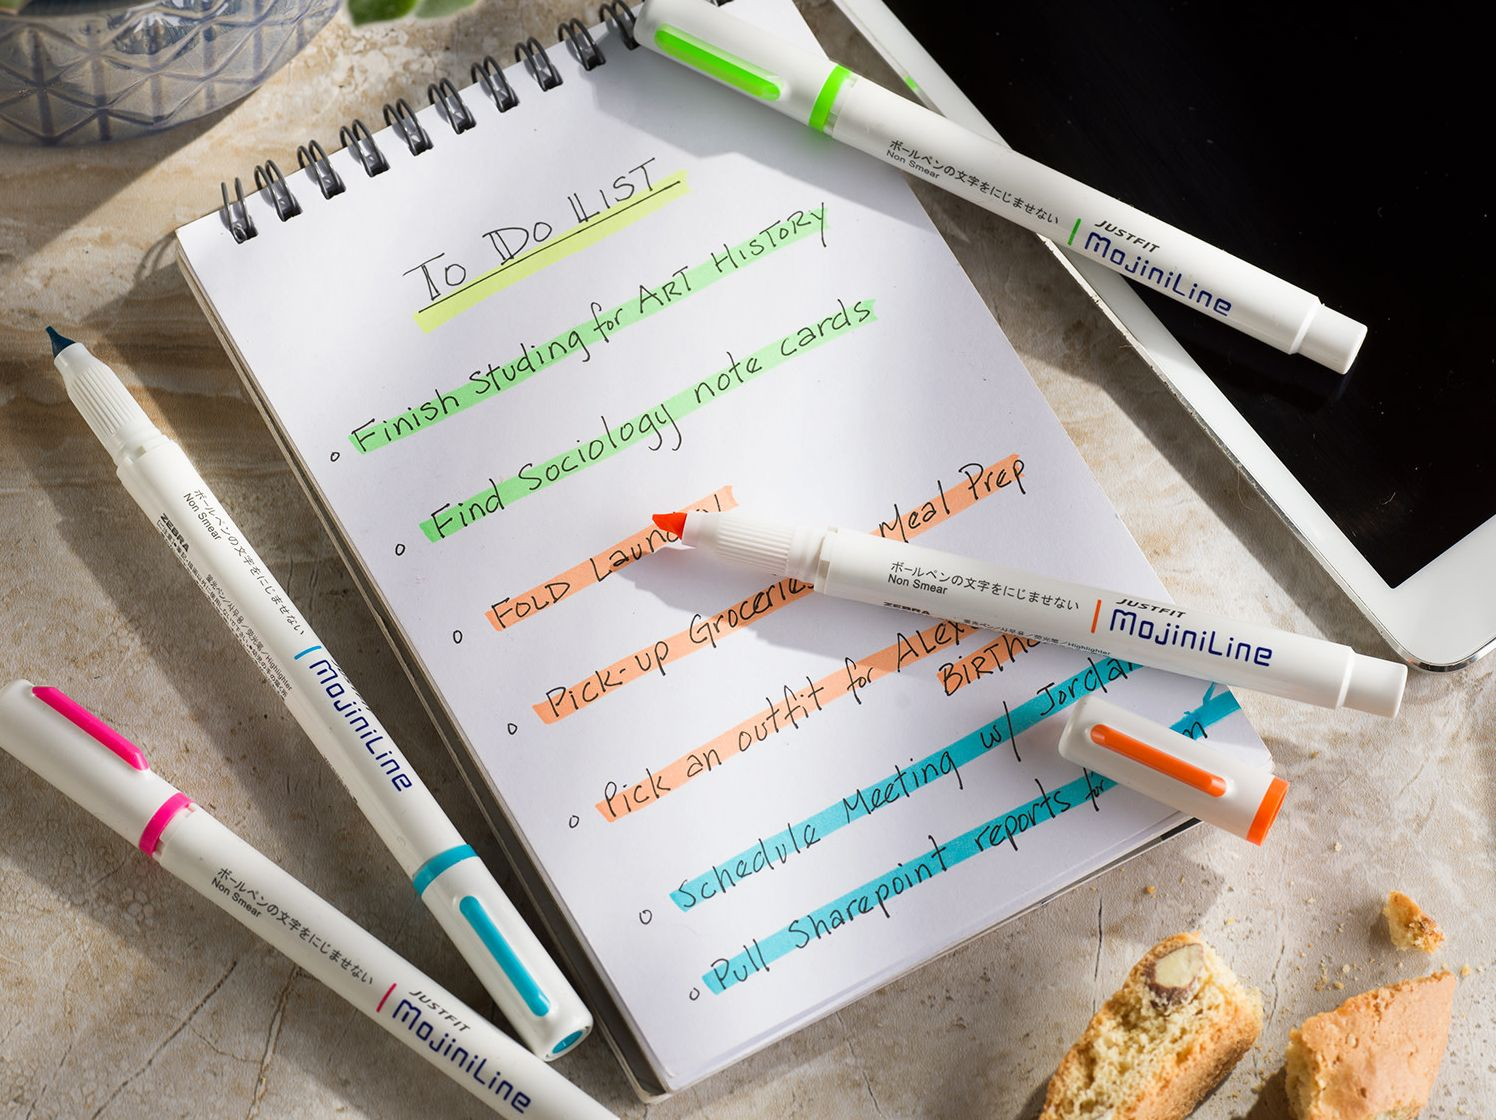 To Do List
Finish Studing for ART HISTORY
Find Sociology note cards
FOLD
Pick-up Groceries Meal Prep
Pick an outfit for
Schedule Meeting w/ Jordan
Pull Sharepoint reports for
ボールペンの文字をにじませない
Non Smear
JUSTFIT
MojiniLine
ボールペンの文字をにじませない
Non Smear
ZEBRA
蛍光ペン/사무용/荧光笔/Highlighter
JUSTFIT
MojiniLine
ボールペンの文字をにじませない
Non Smear
ZEBRA
MojiniLine
ボールペンの文字をにじませない
Non Smear
JUSTFIT
MojiniLine